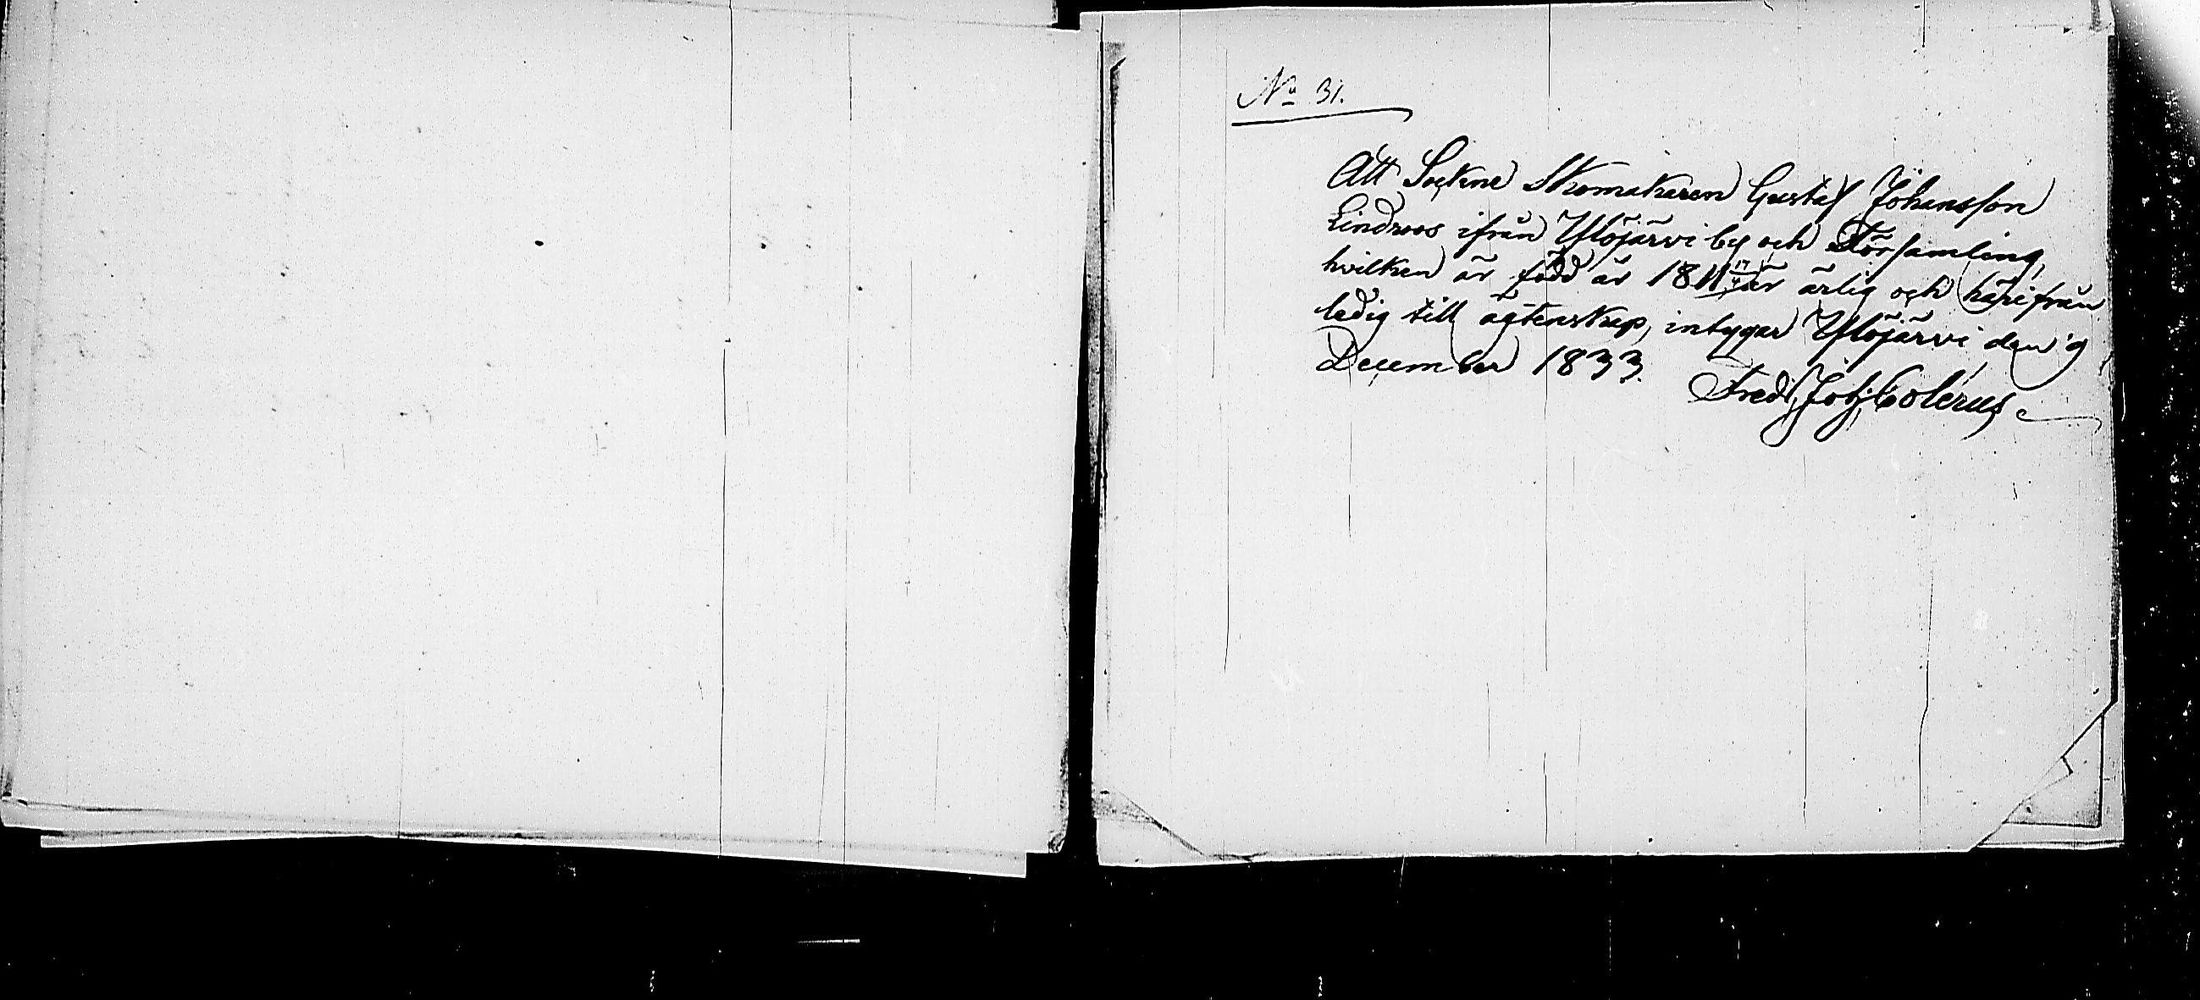 No 31.
Att Sockne Skomakaren Gustaf Johansson
Lindroos ifrån Ylöjärvi by och Församling,
hvilken är född år 1811 är ärlig och härifrån
ledig till ägtenskap, intygar Ylöjärvi den 9
December 1833.
Fredr. Joh. Colerus